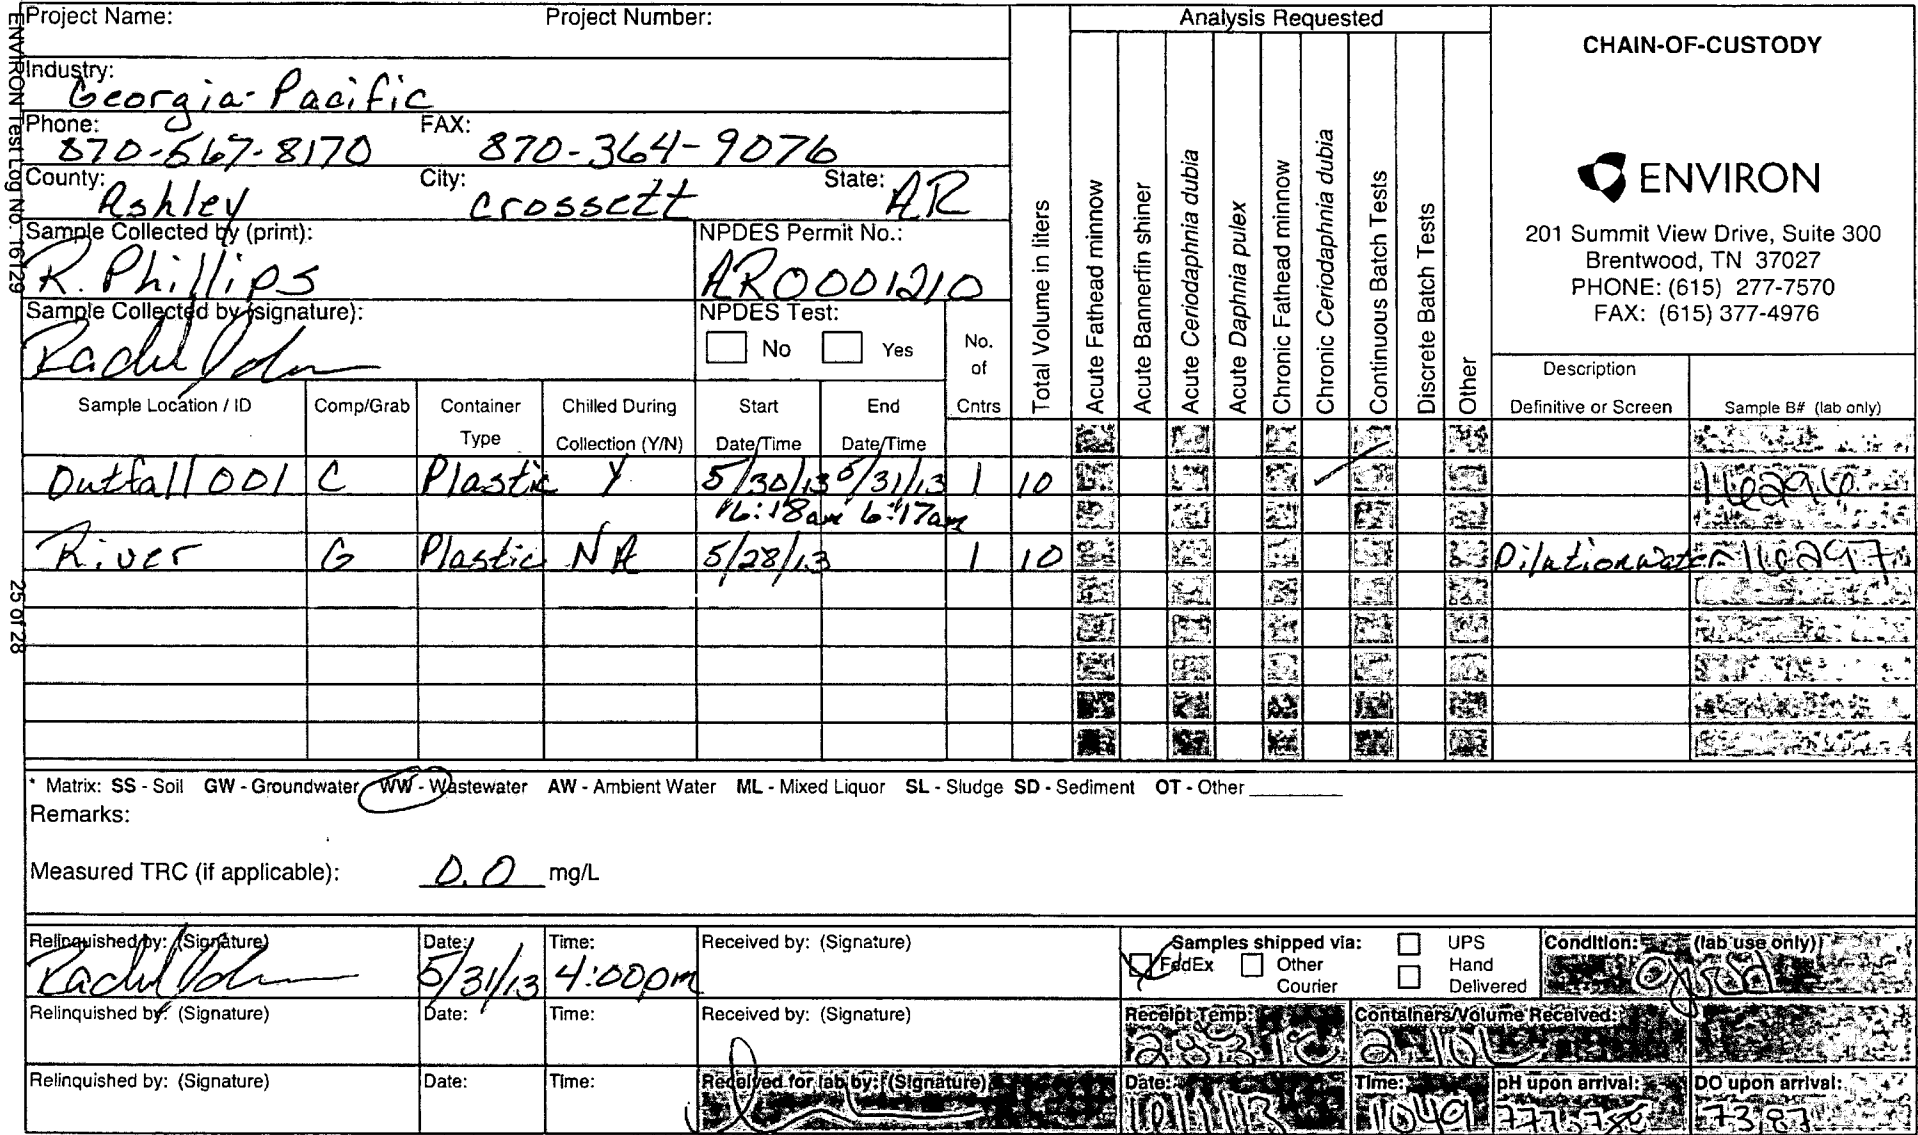 ENVIRON Test Log No. 16129
25 of 28
Project Name: Project Number:
Industry: Georgia-Pacific
Phone: 870-567-8170 FAX: 870-364-9076
County: Ashley City: crossett State: AR
Sample Collected by (print): R. Phillips
NPDES Permit No.: AR0001210
Sample Collected by (signature):
NPDES Test: No Yes
No. of Cntrs
Total Volume in liters
Analysis Requested
Acute Fathead minnow
Acute Bannerfin shiner
Acute Ceriodaphnia dubia
Acute Daphnia pulex
Chronic Fathead minnow
Chronic Ceriodaphnia dubia
Continuous Batch Tests
Discrete Batch Tests
Other
CHAIN-OF-CUSTODY
ENVIRON
201 Summit View Drive, Suite 300
Brentwood, TN 37027
PHONE: (615) 277-7570
FAX: (615) 377-4976
Description
Definitive or Screen
Sample B# (lab only)
Sample Location / ID Comp/Grab Container Type Chilled During Collection (Y/N) Start Date/Time End Date/Time
Outfall 001 C Plastic Y 5/30/13 5/31/13 1 10 16296
6:18am 6:17am
River G Plastic NA 5/28/13 1 10 Dilution water 16297
* Matrix: SS - Soil GW - Groundwater WW - Wastewater AW - Ambient Water ML - Mixed Liquor SL - Sludge SD - Sediment OT - Other
Remarks:
Measured TRC (if applicable): 0.0 mg/L
Relinquished by: (Signature) Date: 5/31/13 Time: 4:00pm Received by: (Signature)
Samples shipped via: UPS
FedEx Other Courier Hand Delivered
Condition: (lab use only) good
Relinquished by: (Signature) Date: Time: Received by: (Signature)
Receipt Temp: Containers/Volume Received: 2-10L
Relinquished by: (Signature) Date: Time: Received for lab by: (Signature)
Date: Time: 1049 pH upon arrival: DO upon arrival: